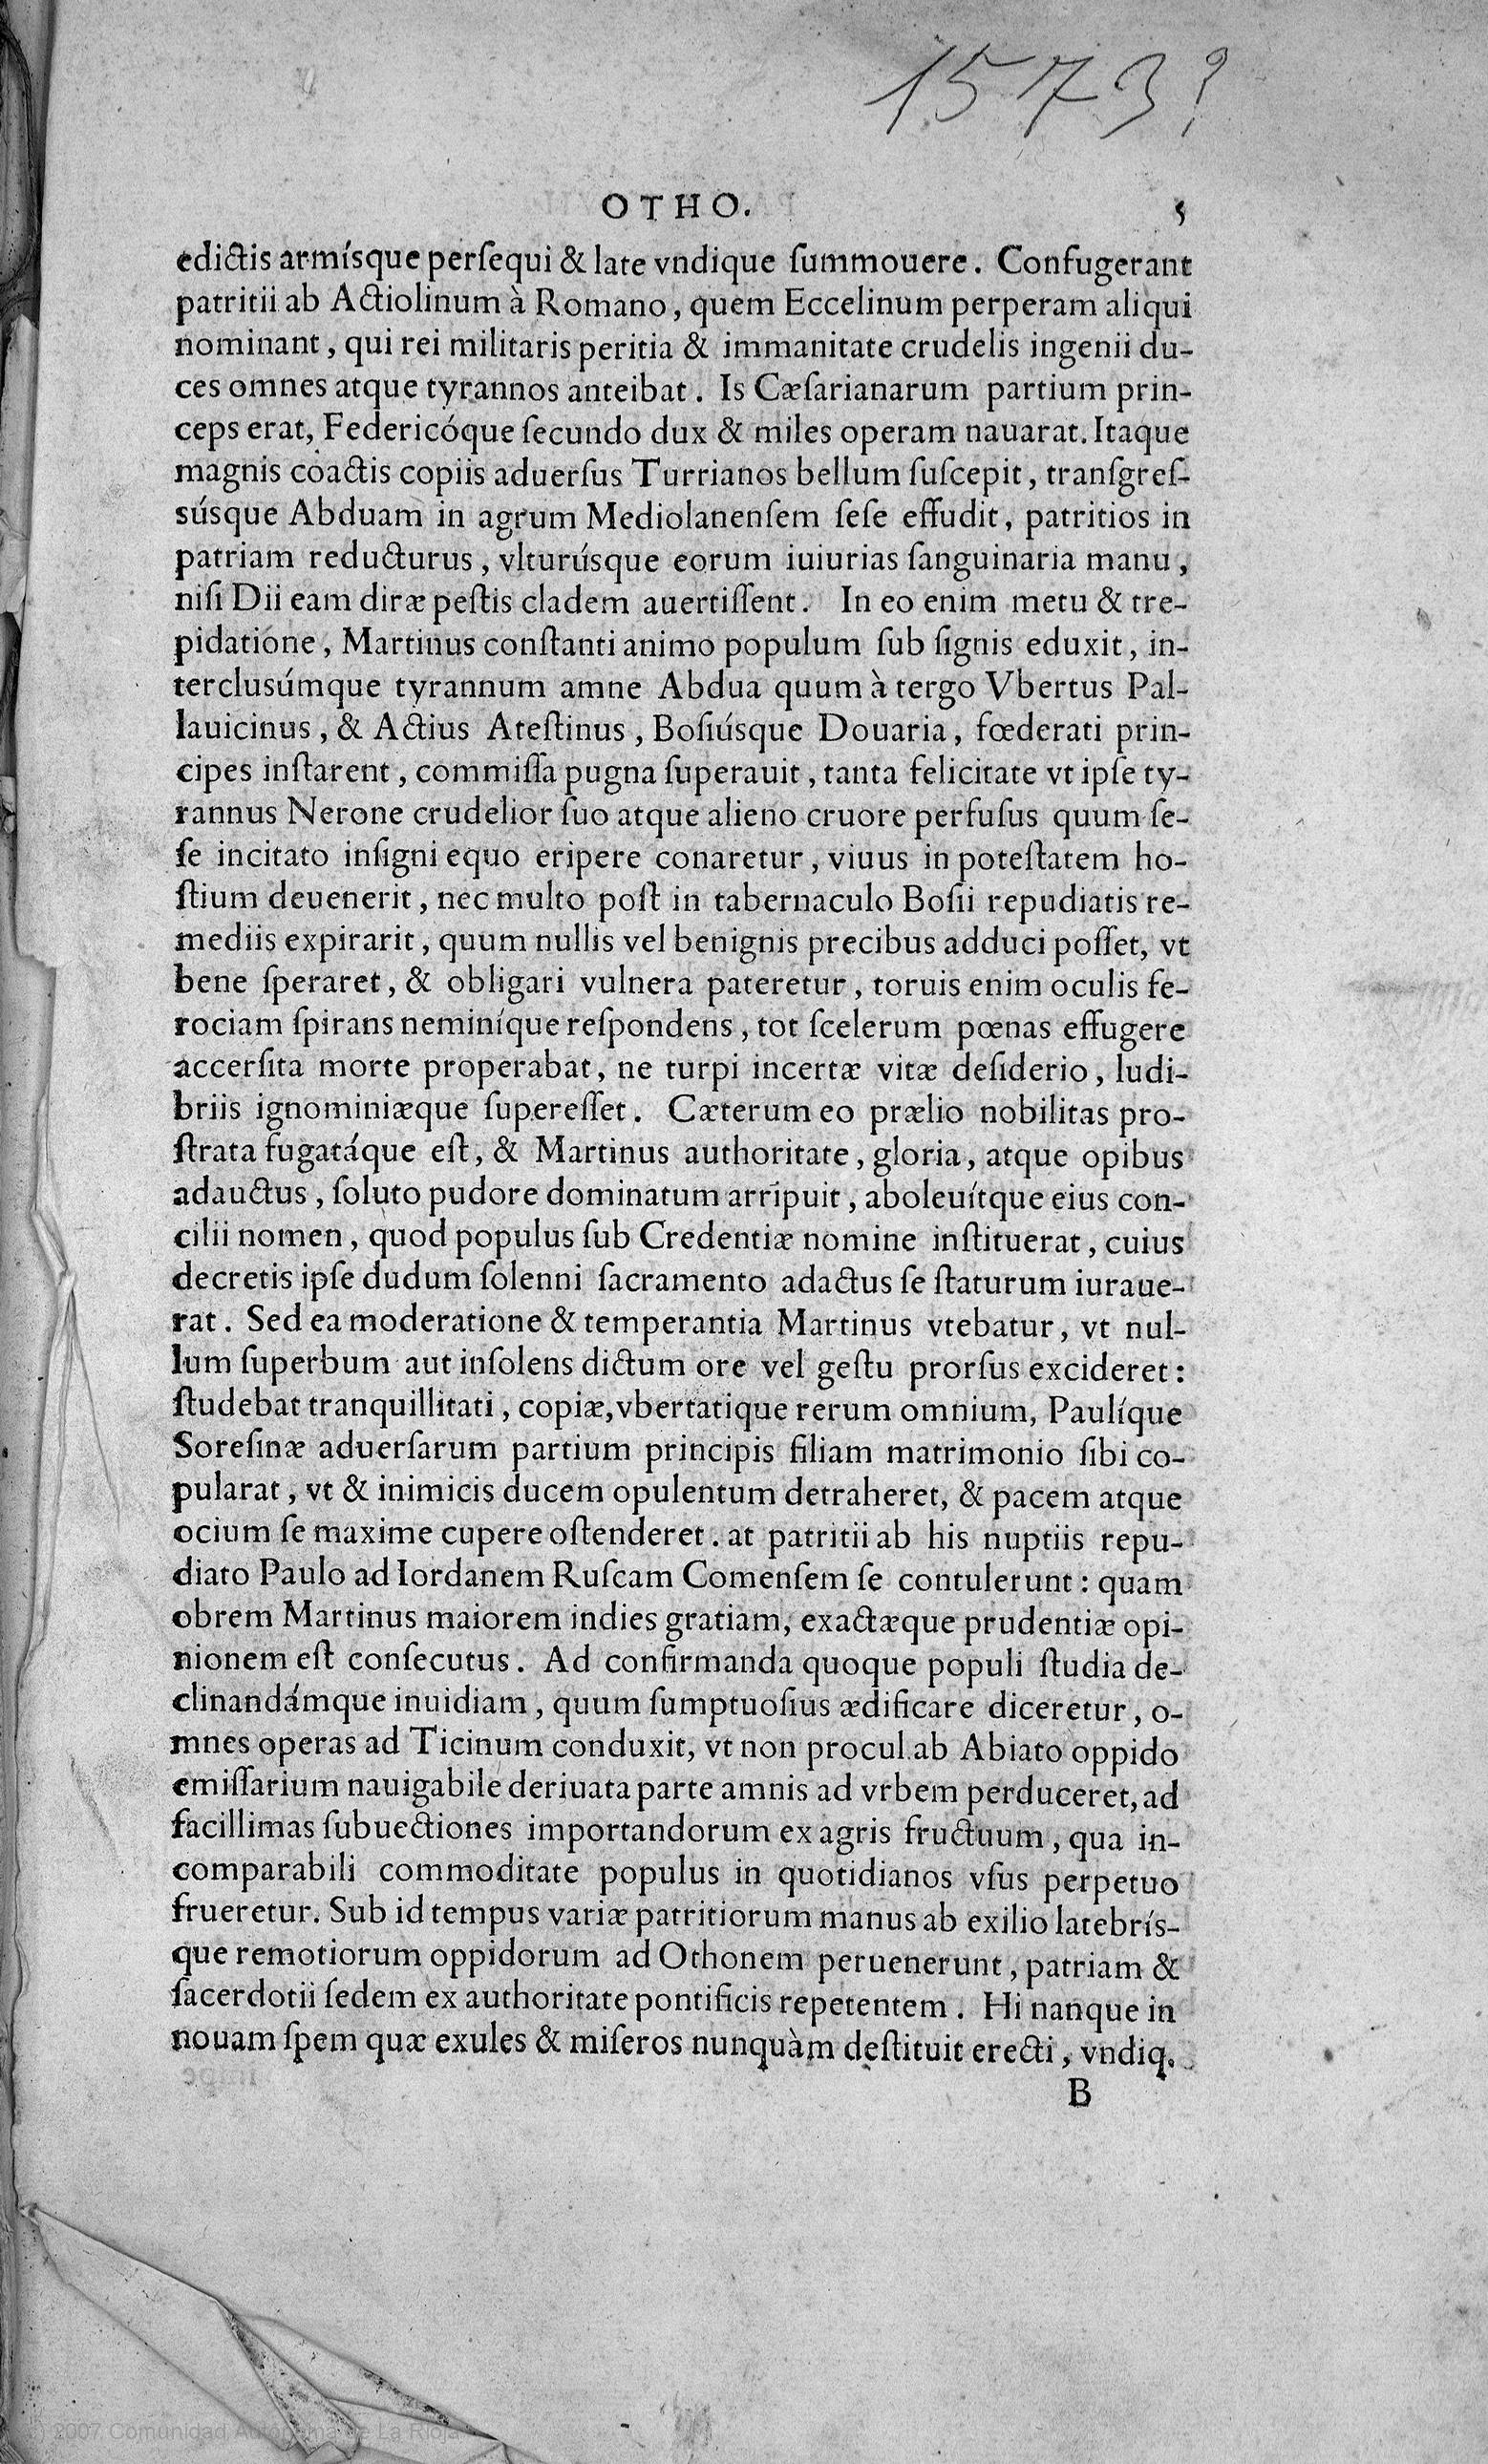 1573?
OTHO. 5
edictis armísque persequi & late vndique summouere. Confugerant
patritii ab Actiolinum à Romano, quem Eccelinum perperam aliqui
nominant, qui rei militaris peritia & immanitate crudelis ingenii du-
ces omnes atque tyrannos anteibat. Is Cæsarianarum partium prin-
ceps erat, Federicóque secundo dux & miles operam nauarat. Itaque
magnis coactis copiis aduersus Turrianos bellum suscepit, transgres-
súsque Abduam in agrum Mediolanensem sese effudit, patritios in
patriam reducturus, vlturúsque eorum iuiurias sanguinaria manu,
nisi Dii eam diræ pestis cladem auertissent. In eo enim metu & tre-
pidatione, Martinus constanti animo populum sub signis eduxit, in-
terclusúmque tyrannum amne Abdua quum à tergo Vbertus Pal-
lauicinus, & Actius Atestinus, Bosiúsque Douaria, fœderati prin-
cipes instarent, commissa pugna superauit, tanta felicitate vt ipse ty-
rannus Nerone crudelior suo atque alieno cruore perfusus quum se-
se incitato insigni equo eripere conaretur, viuus in potestatem ho-
stium deuenerit, nec multo post in tabernaculo Bosii repudiatis re-
mediis expirarit, quum nullis vel benignis precibus adduci posset, vt
bene speraret, & obligari vulnera pateretur, toruis enim oculis fe-
rociam spirans neminíque respondens, tot scelerum pœnas effugere
accersita morte properabat, ne turpi incertæ vitæ desiderio, ludi-
briis ignominiæque superesset. Cæterum eo prælio nobilitas pro-
strata fugatáque est, & Martinus authoritate, gloria, atque opibus
adauctus, soluto pudore dominatum arripuit, aboleuítque eius con-
cilii nomen, quod populus sub Credentiæ nomine instituerat, cuius
decretis ipse dudum solenni sacramento adactus se staturum iuraue-
rat. Sed ea moderatione & temperantia Martinus vtebatur, vt nul-
lum superbum aut insolens dictum ore vel gestu prorsus excideret:
studebat tranquillitati, copiæ, vbertatique rerum omnium, Paulíque
Soresinæ aduersarum partium principis filiam matrimonio sibi co-
pularat, vt & inimicis ducem opulentum detraheret, & pacem atque
ocium se maxime cupere ostenderet. at patritii ab his nuptiis repu-
diato Paulo ad Iordanem Ruscam Comensem se contulerunt: quam
obrem Martinus maiorem indies gratiam, exactæque prudentiæ opi-
nionem est consecutus. Ad confirmanda quoque populi studia de-
clinandámque inuidiam, quum sumptuosius ædificare diceretur, o-
mnes operas ad Ticinum conduxit, vt non procul ab Abiato oppido
emissarium nauigabile deriuata parte amnis ad vrbem perduceret, ad
facillimas subuectiones importandorum ex agris fructuum, qua in-
comparabili commoditate populus in quotidianos vsus perpetuo
frueretur. Sub id tempus variæ patritiorum manus ab exilio latebrís-
que remotiorum oppidorum ad Othonem peruenerunt, patriam &
sacerdotii sedem ex authoritate pontificis repetentem. Hi nanque in
nouam spem quæ exules & miseros nunquàm destituit erecti, vndiq.
B
(c) 2007 Comunidad Autónoma de La Rioja